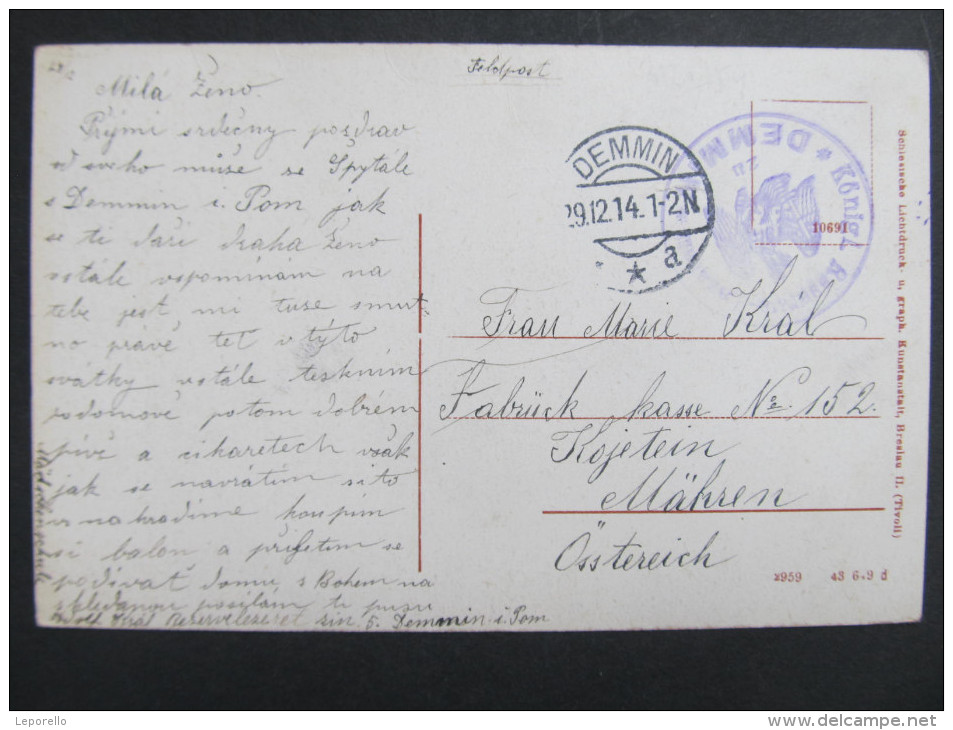 Feldpost
Milá Ženo.
Přijmi srdečny pozdrav
od sveho muže se Spytále
s Demmin i. Pom jak
se ti daři draha Ženo
ustále vspomínám na
tebe jest mi tuse smut-
no právě teť v týto
svátky ustále teskním
podomově potom dobrém
pivě a cikaretech však
jak se navrátím si to
vinahradíme koupím
si balon a přiletim se
podivať domu s Bohem na
shledanou posilám ti pusu
Král Reservelazaret zin 5. Demmin i. Pom
DEMMIN
29.12.14. 1-2N
a
DEMM
Königl.
10691
Frau Marie Král
Fabrück kasse No 152.
Kojetein
Mähren
Össtereich
Schlesische Lichtdruck- u. graph. Kunstanstalt, Breslau II. (Tivoli)
2959 43 6.9 d
Leporello
http://www.delcampe.net